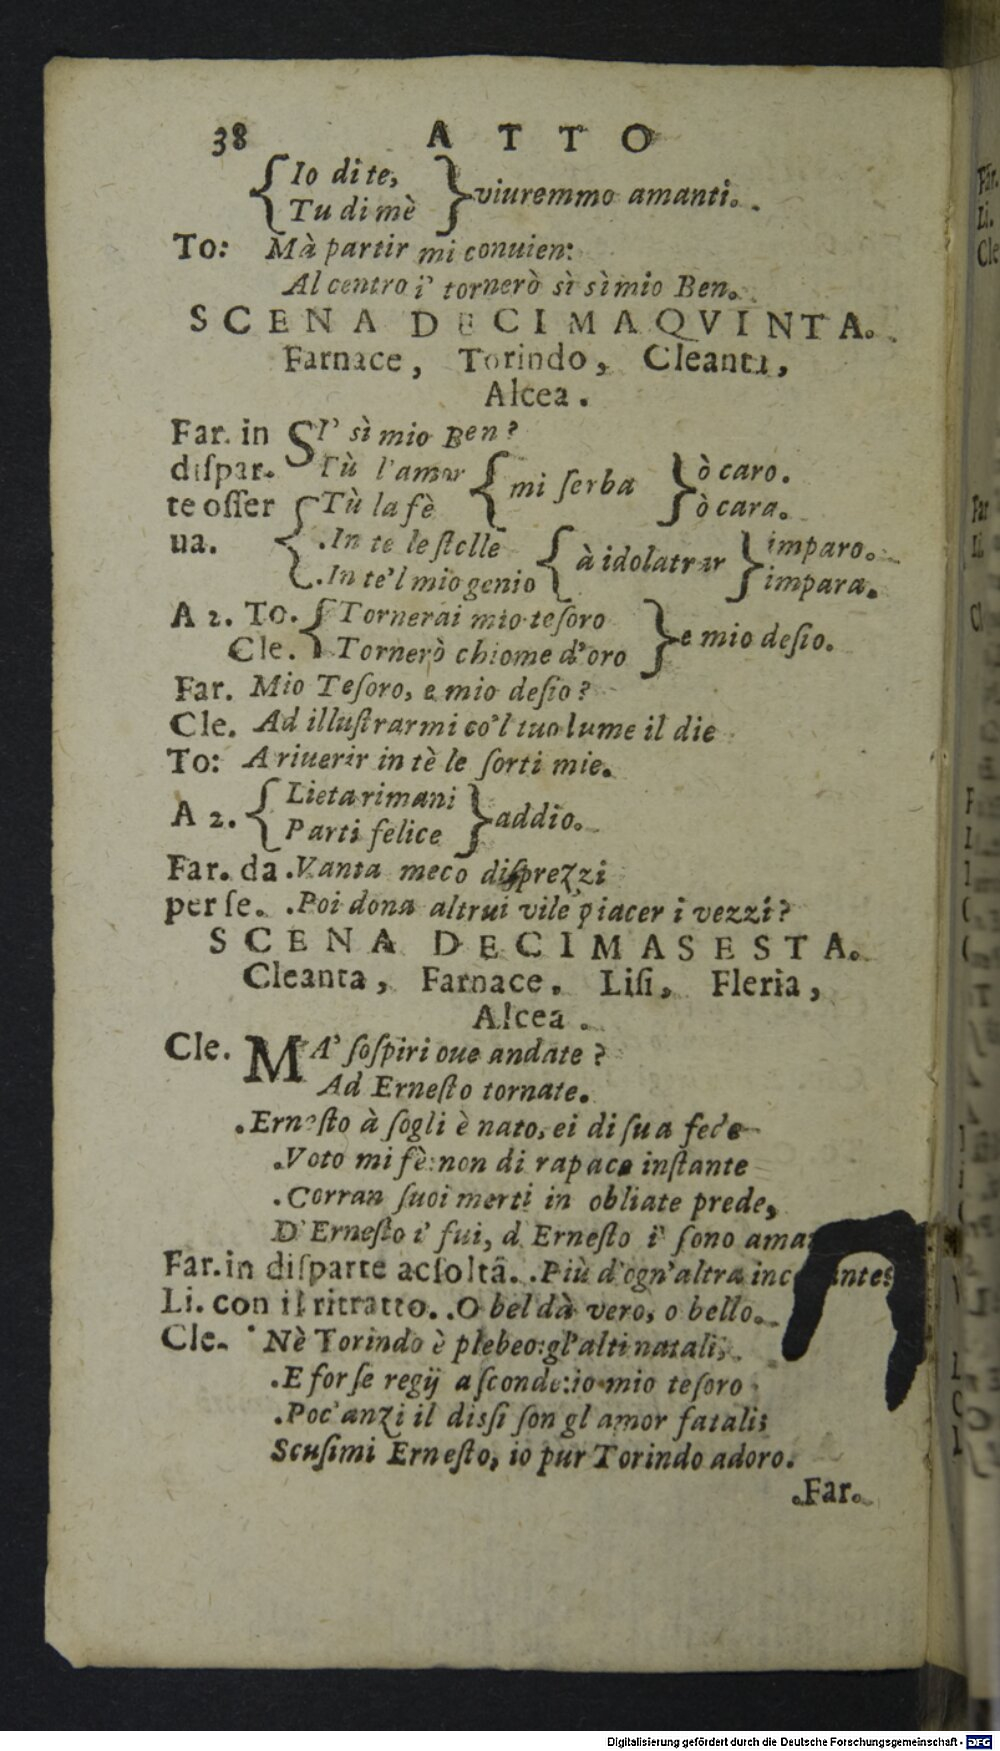 38 ATTO
{ Io di te,
Tu di mè } viuremmo amanti.
To: Mà partir mi conuien:
Al centro i' tornerò sì sì mio Ben.
SCENA DECIMAQVINTA.
Farnace, Torindo, Cleanta,
Alcea.
Far. in SI' sì mio Ben?
dispar- Tù l'amor { mi serba } ò caro.
te osser { Tù la fè ò cara.
ua. In te le stelle { à idolatrar } imparo.
In te'l mio genio impara.
A 2. To. { Tornerai mio tesoro
Cle. Tornerò chiome d'oro } e mio desio.
Far. Mio Tesoro, e mio desio?
Cle. Ad illustrarmi co'l tuo lume il die
To: A riuerir in tè le sorti mie.
A 2. { Lieta rimani
Parti felice } addio.
Far. da Vanta meco disprezzi
per se. Poi dona altrui vile piacer i vezzi?
SCENA DECIMASESTA.
Cleanta, Farnace, Lisi, Fleria,
Alcea.
Cle. MA' sospiri oue andate?
Ad Ernesto tornate.
Ernesto à sogli è nato, ei di sua fede
Voto mi fè: non di rapace instante
Corran suoi merti in obliate prede,
D'Ernesto i' fui, d Ernesto i' sono
Far. in disparte ascolta. Più d'ogn'altra
Li. con il ritratto. O bel dà vero, o bello.
Cle. Nè Torindo è plebeo: gl'alti natali,
E forse regij asconde: io mio tesoro
Poc'anzi il dissi son gl amor fatali;
Scusimi Ernesto, io pur Torindo adoro.
Far.
Digitalisierung gefördert durch die Deutsche Forschungsgemeinschaft - DFG